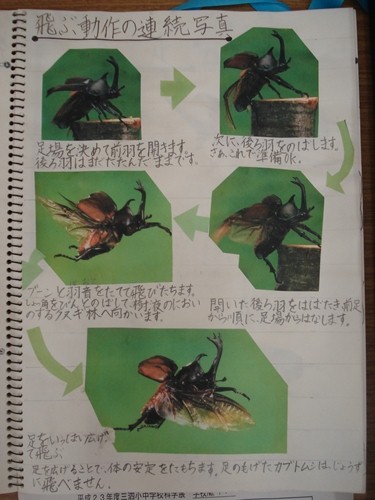 飛ぶ動作の連続写真
足場を決めて前羽を開きます。
後ろ羽はまだたたんだままです。
次に、後ろ羽をのばします。
さあ、これで準備OK。
開いた後ろ羽をはばたき前足
から順に、足場からはなします。
ブーンと羽音をたてて飛びたちます。
角をぴんとのばして、樹液のにおい
のするクヌギ林へ向かいます。
足をいっぱい広げ
て飛ぶ
足を広げることで、体の安定をたもちます。足のもげたカブトムシは、じょうず
に飛べません。
平成23年度三酒小中学校科学展